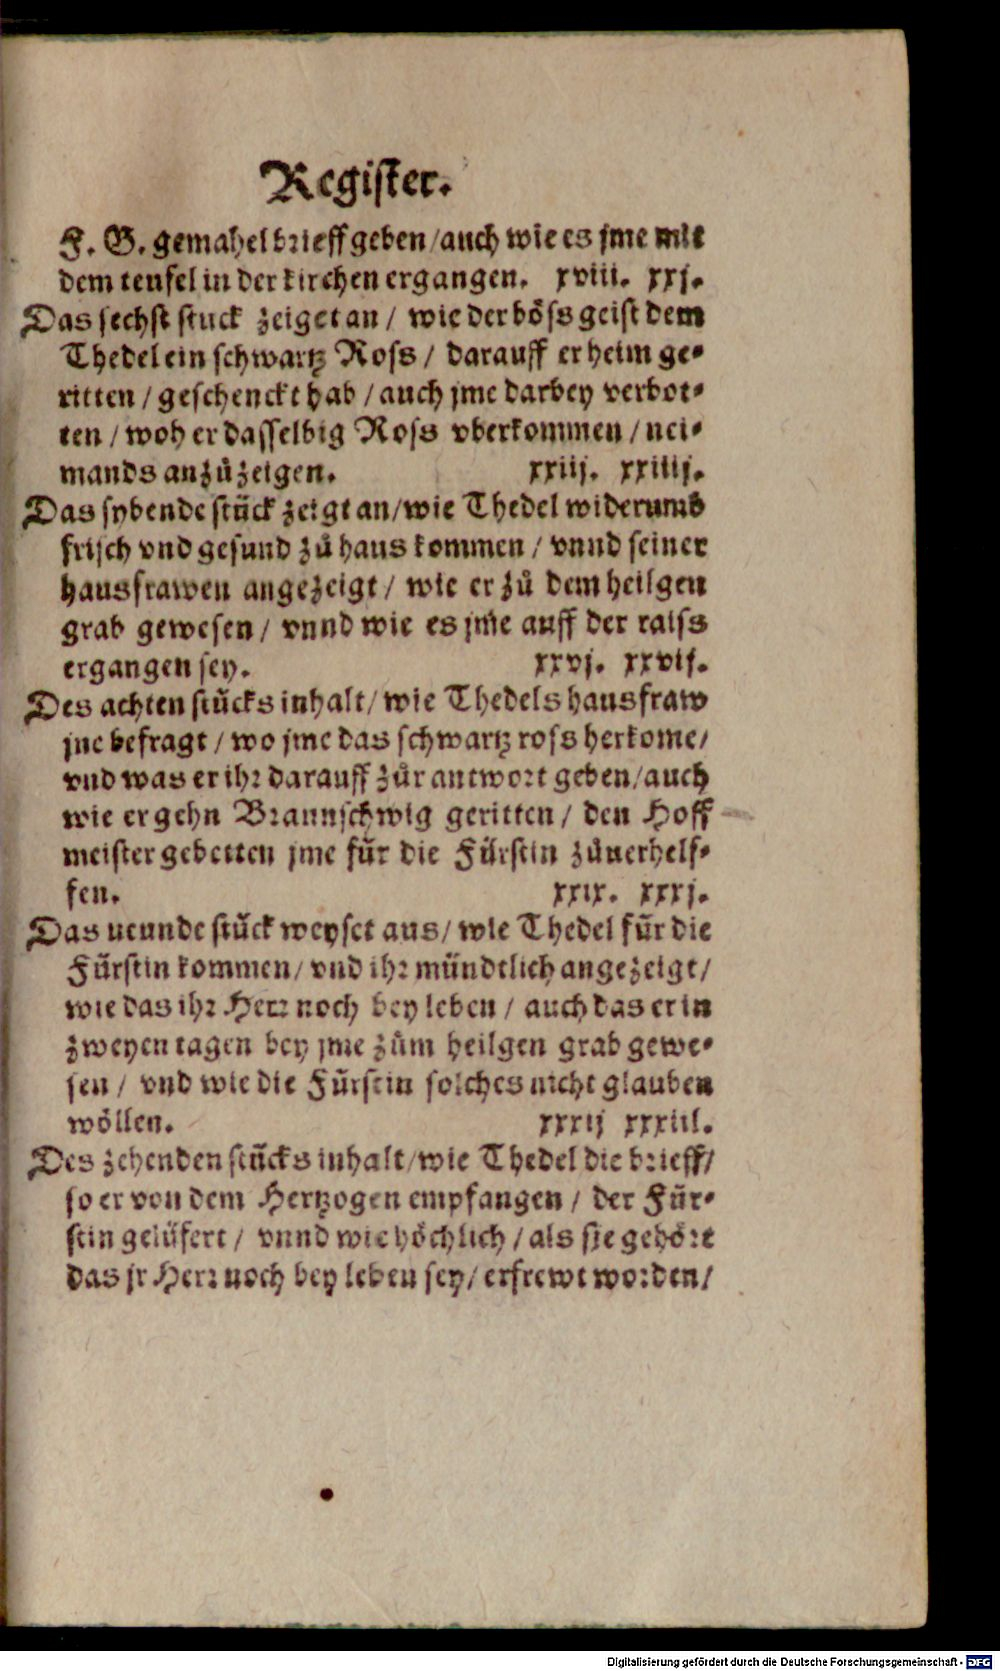 Register.
F. G. gemahel brieff geben / auch wie es jme mit
dem teufel in der kirchen ergangen. xviii. xxj.
Das sechst stuck zeiget an / wie der böss geist dem
Thedel ein schwartz Ross / darauff er heim ge-
ritten / geschenckt hab / auch jme darbey verbot-
ten / woh er dasselbig Ross vberkommen / nei-
mands anzůzeigen. xxiij. xxiiij.
Das sybende stück zeigt an / wie Thedel widerumb
frisch vnd gesund zů haus kommen / vnnd seiner
hausfrawen angezeigt / wie er zů dem heilgen
grab gewesen / vnnd wie es jme auff der raiss
ergangen sey. xxvj. xxvij.
Des achten stücks inhalt / wie Thedels hausfraw
jne befragt / wo jme das schwartz ross herkome /
vnd was er ihr darauff zůr antwort geben / auch
wie er gehn Braunschwig geritten / den Hoff
meister gebetten jme für die Fürstin zůuerhelf-
fen. xxix. xxxj.
Das neunde stück weyset aus / wie Thedel für die
Fürstin kommen / vnd ihr mündtlich angezeigt /
wie das ihr Herr noch bey leben / auch das er in
zweyen tagen bey jme zům heilgen grab gewe-
sen / vnd wie die Fürstin solches nicht glauben
wöllen. xxxij xxxiii.
Des zehenden stücks inhalt / wie Thedel die brieff /
so er von dem Hertzogen empfangen / der Für-
stin gelüfert / vnnd wie höchlich / als sie gehört
das jr Herr noch bey leben sey / erfrewt worden /
Digitalisierung gefördert durch die Deutsche Forschungsgemeinschaft - DFG